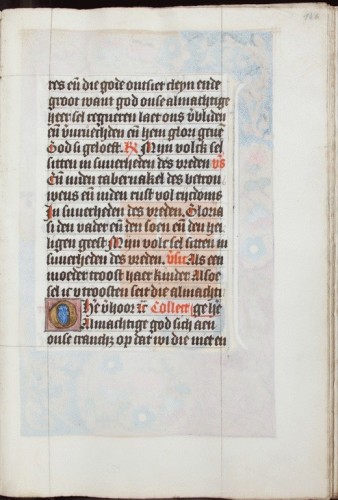 res eñ die gode ontsiet cleyn ende
groot want god onse almachtige
heer sel regneren laet ons v̄bliden
eñ v̄vruechden eñ hem glori geuē
God si geloeft. R Mijn volck sel
sitten in suuerheden des vreden v̄s
Eñ inden tabernakel des betrou
wens eñ inden rust vol rijcdoms
In suuerheden des vreden. Gloria
si den vader eñ den soen eñ den hei
ligen geest Mijn volc sel sitten in
suuerheden des vreden. v̄sic Als een
moeder troost haer kinder Alsoe
sel ic v troosten seit die almachti
O he v̄hoor zc̄ Collect ge he
Almachtige god sich aen
onse cranchz op dat wi die met en